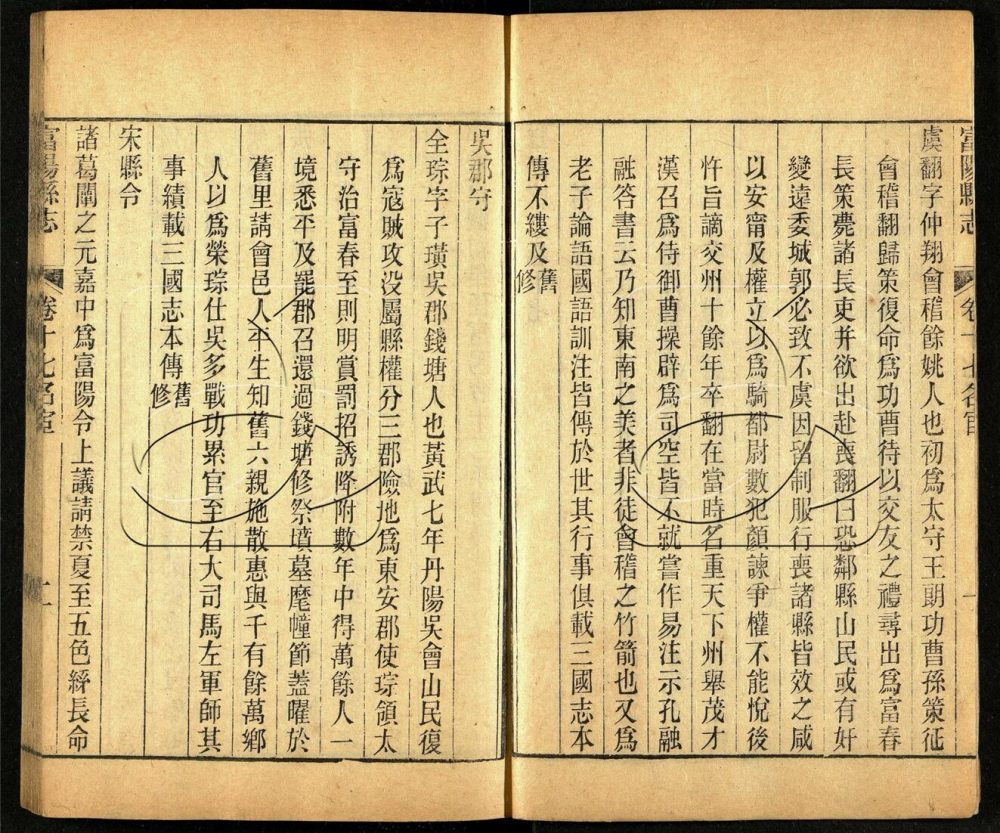 富陽縣志　卷十七名宦　一
虞翻字仲翔會稽餘姚人也初爲太守王朗功曹孫策征
會稽翻歸策復命爲功曹待以交友之禮尋出爲富春
長策薨諸長吏并欲出赴喪翻曰恐鄰縣山民或有奸
變遠委城郭必致不虞因留制服行喪諸縣皆效之咸
以安甯及權立以爲騎都尉數犯顏諫爭權不能悅後
忤旨謫交州十餘年卒翻在當時名重天下州舉茂才
漢召爲侍御曹操辟爲司空皆不就嘗作易注示孔融
融答書云乃知東南之美者非徒會稽之竹箭也又爲
老子論語國語訓注皆傳於世其行事俱載三國志本
傳不縷及舊修
吳郡守
全琮字子璜吳郡錢塘人也黃武七年丹陽吳會山民復
爲寇賊攻没屬縣權分三郡險地爲東安郡使琮領太
守治富春至則明賞罰招誘降附數年中得萬餘人一
境悉平及罷郡召還過錢塘修祭墳墓麾幢節蓋曜於
舊里請會邑人平生知舊六親施散惠與千有餘萬鄉
人以爲榮琮仕吳多戰功累官至右大司馬左軍師其
事績載三國志本傳舊修
宋縣令
諸葛闡之元嘉中爲富陽令上議請禁夏至五色綵長命
富陽縣志　卷十七名宦